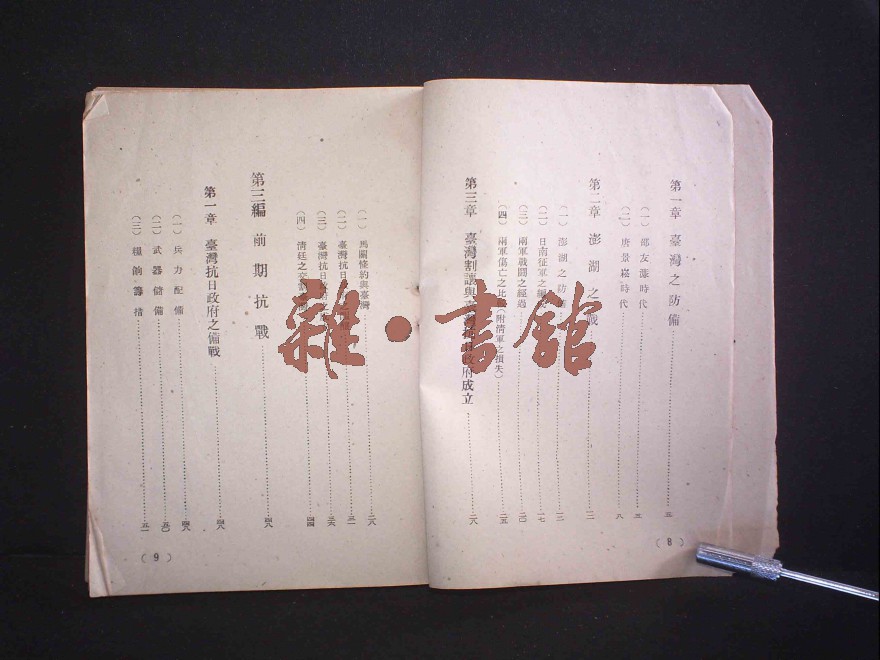 第一章 臺灣之防備……三
(一) 邵友濂時代……三
(二) 唐景崧時代……八
第二章 澎湖之 戰……一二
(一) 澎湖之防……一二
(二) 日南征軍之……一七
(三) 兩軍戰鬪之經過……二〇
(四) 兩軍傷亡之比(附清軍之損失)……二五
第三章 臺灣割讓與 政府成立……二八
(8)
(一) 馬關條約與臺灣……二八
(二) 臺灣抗日……三一
(三) 臺灣抗日……三六
(四) 清廷之交……四四
第三編 前期抗戰……四八
第一章 臺灣抗日政府之備戰……四八
(一) 兵力配備……四八
(二) 武器儲備……五〇
(三) 糧餉籌措……五一
(9)
雜・書館